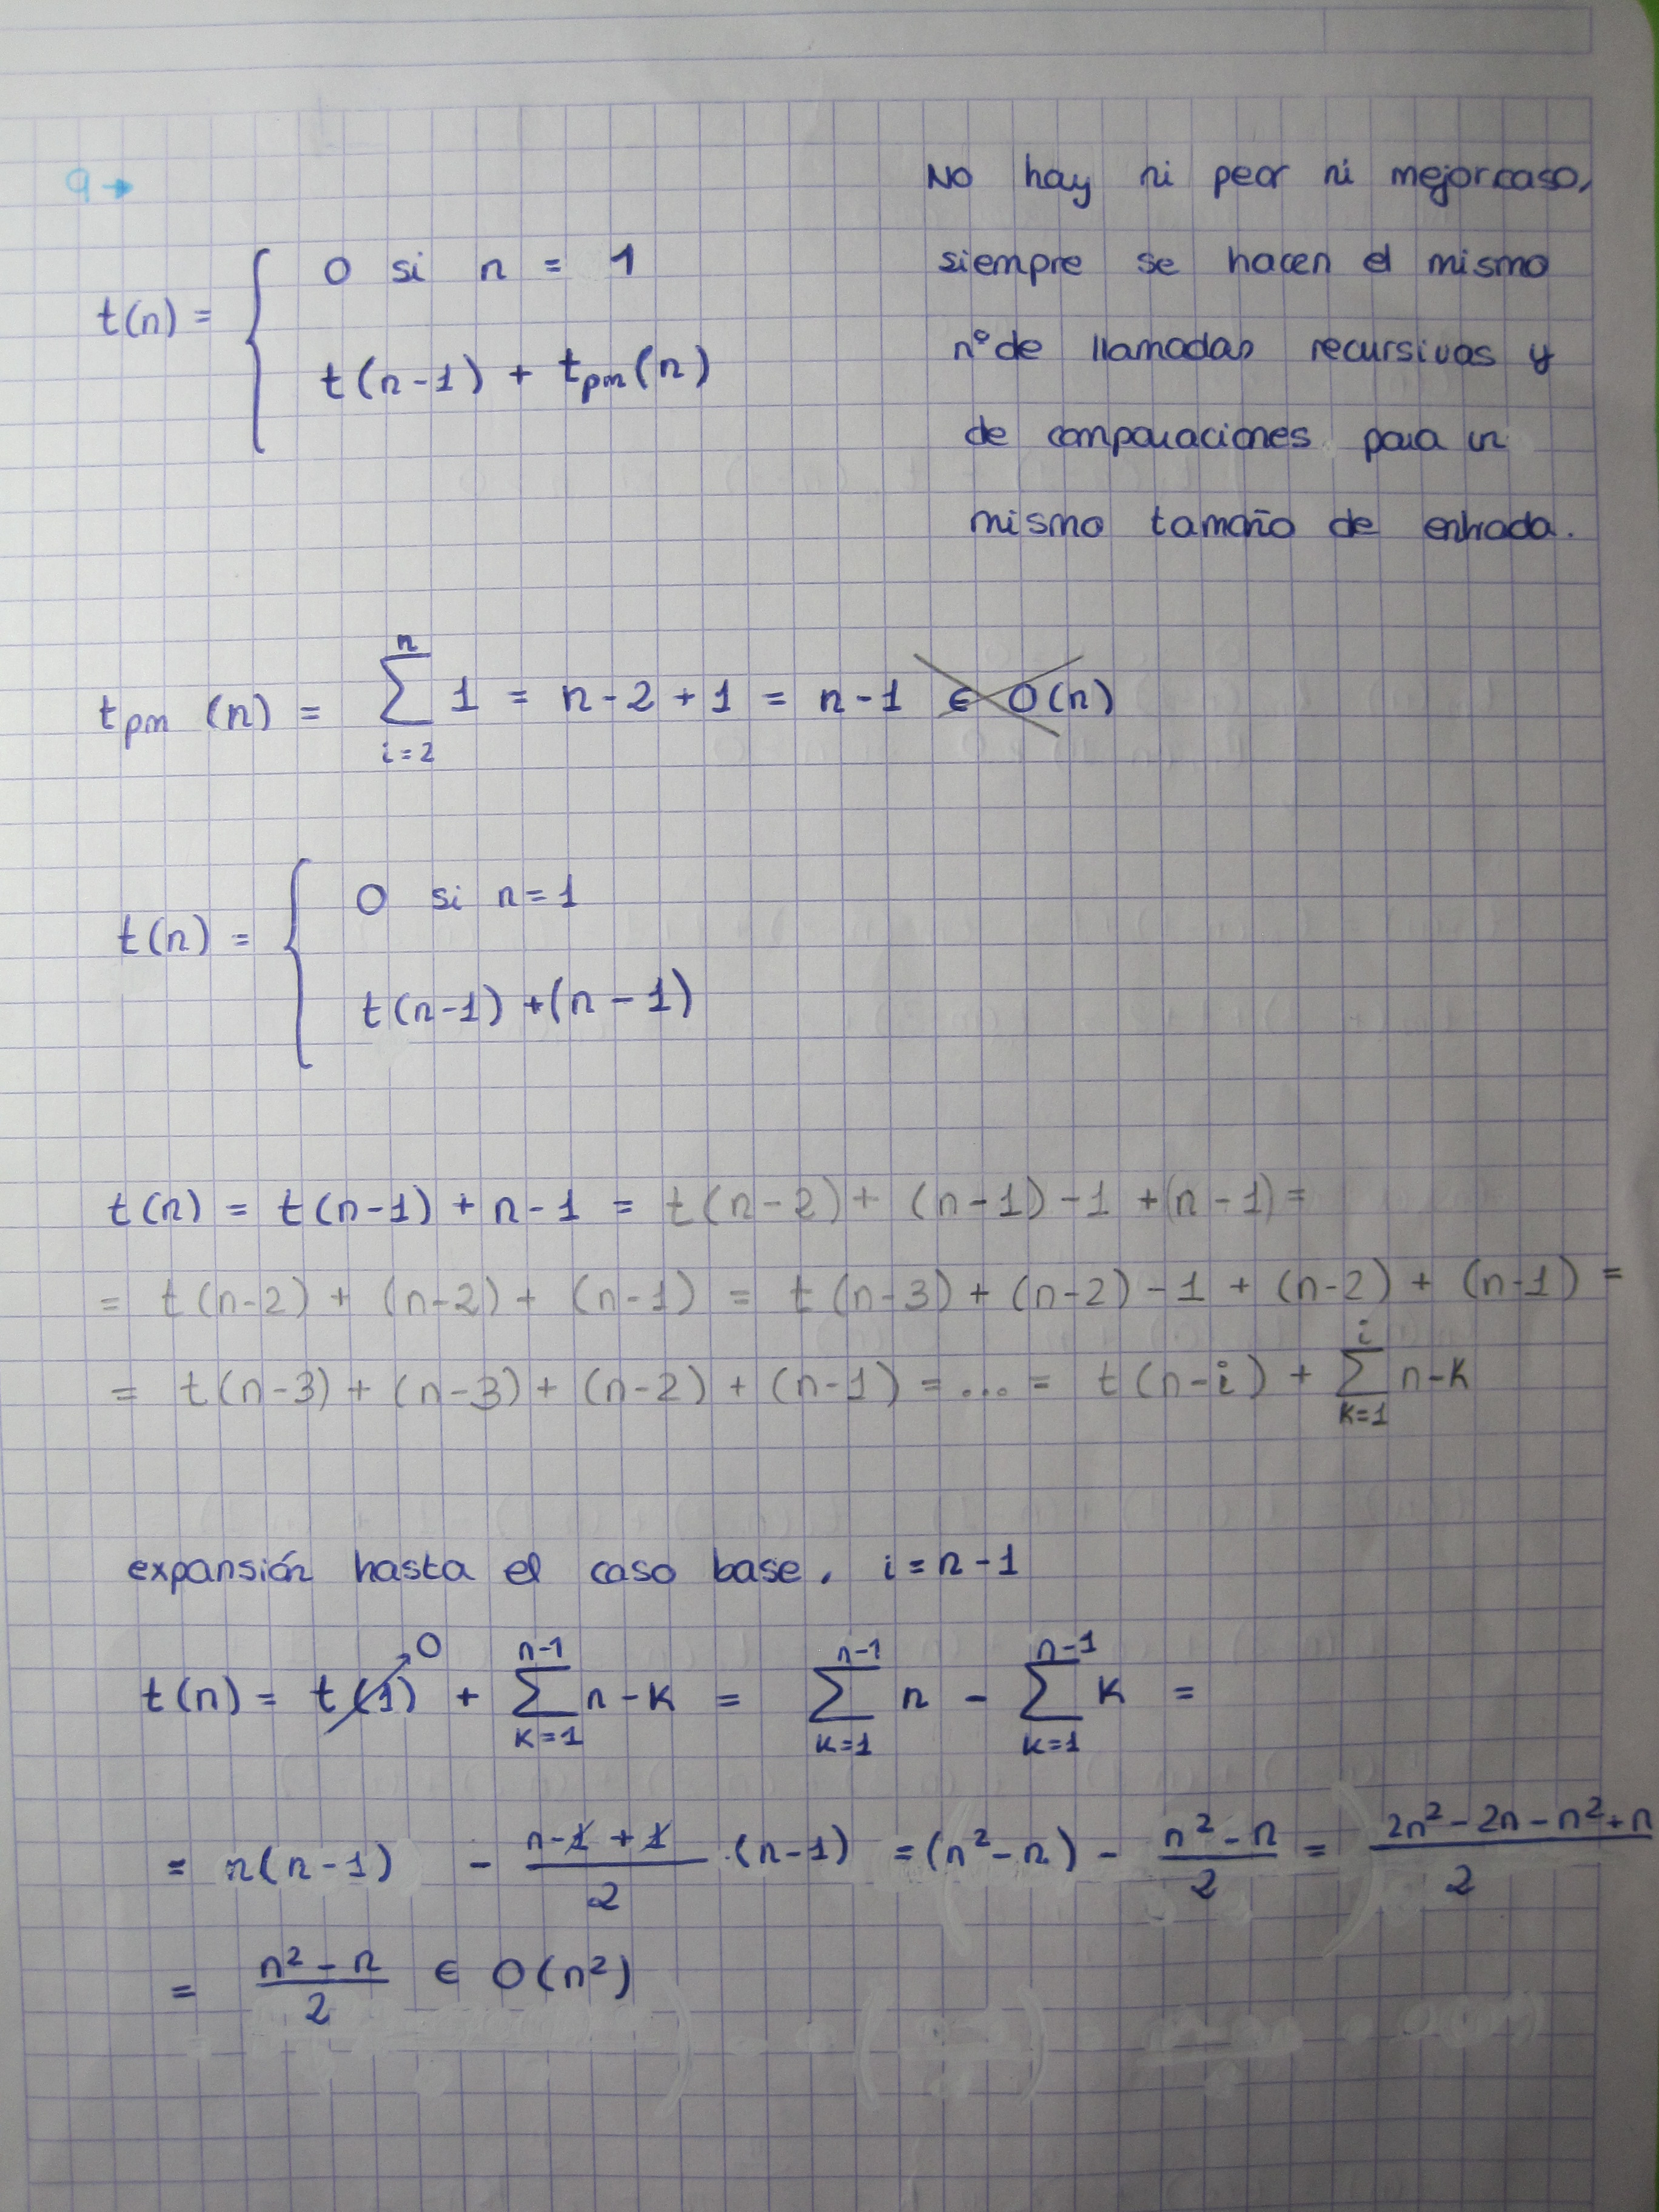 9 →
No hay ni peor ni mejor caso,
siempre se hacen el mismo
nº de llamadas recursivas y
de comparaciones para un
mismo tamaño de entrada.
t(n) = { 0 si n = 1
t(n-1) + t_pm(n)
t_pm (n) = ∑_{i=2}^{n} 1 = n-2+1 = n-1 ∈ O(n)
t(n) = { 0 si n=1
t(n-1) + (n-1)
t(n) = t(n-1) + n-1 = t(n-2) + (n-1)-1 + (n-1) =
= t(n-2) + (n-2) + (n-1) = t(n-3) + (n-2)-1 + (n-2) + (n-1) =
= t(n-3) + (n-3) + (n-2) + (n-1) = ... = t(n-i) + ∑_{k=1}^{i} n-k
expansión hasta el caso base. i = n-1
t(n) = t(1)→0 + ∑_{k=1}^{n-1} n-k = ∑_{k=1}^{n-1} n - ∑_{k=1}^{n-1} k =
= n(n-1) - (n-1+1)/2 · (n-1) = (n²-n) - (n²-n)/2 = (2n²-2n-n²+n)/2
= (n²-n)/2 ∈ O(n²)